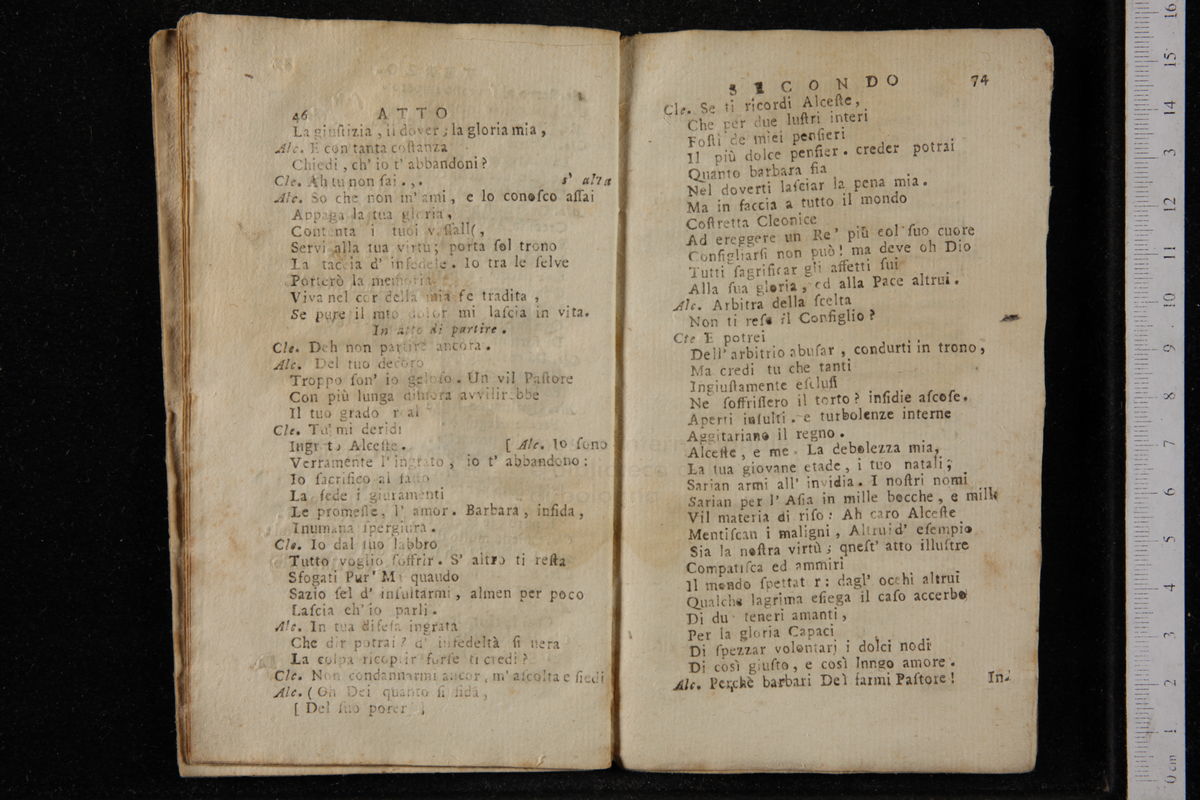 46 ATTO
La giuſtizia, il dover; la gloria mia,
Alc. E con tanta coſtanza
Chiedi, ch' io t' abbandoni?
Cle. Ah tu non ſai.,. s' alza
Alc. So che non m' ami, e lo conoſco aſſai
Appaga la tua gloria,
Contenta i tuoi
Servi alla tua virtù; porta ſol trono
La taccia d' infedele. Io tra le ſelve
Porterò la memoria
Viva nel cor della mia fe tradita,
Se pure il mto dolor mi laſcia in vita.
In atto di partire.
Cle. Deh non partire ancora.
Alc. Del tuo decoro
Troppo ſon' io geloſo. Un vil Paſtore
Con più lunga dimora avvilirebbe
Il tuo grado real
Cle. Tu mi deridi
Ingrato Alceſte. [ Alc. Io ſono
Verramente l' ingrato, io t' abbandono:
Io ſacrifico al faſto
La fede i giuramenti
Le promeſſe, l' amor. Barbara, infida,
Inumana ſpergiura.
Cle. Io dal tuo labbro
Tutto voglio ſoffrir. S' altro ti reſta
Sfogati Pur' Mi quando
Sazio ſel d' inſultarmi, almen per poco
Laſcia ch' io parli.
Alc. In tua difeſa ingrata
Che dir potrai? d' infedeltà ſi nera
La colpa ricoprir forſe ti credi?
Cle. Non condannarmi ancor, m' aſcolta e ſiedi
Alc. (Oh Dei quanto ſi fida,
[ Del ſuo poter )
SECONDO 74
Cle. Se ti ricordi Alceſte,
Che per due luſtri interi
Foſti de miei penſieri
Il più dolce penſier. creder potrai
Quanto barbara ſia
Nel doverti laſciar la pena mia.
Ma in faccia a tutto il mondo
Coſtretta Cleonice
Ad ereggere un Re' più col ſuo cuore
Conſigliarſi non può! ma deve oh Dio
Tutti ſagrificar gli affetti ſui
Alla ſua gloria, ed alla Pace altrui.
Alc. Arbitra della ſcelta
Non ti reſe il Conſiglio?
Cte E potrei
Dell' arbitrio abuſar, condurti in trono,
Ma credi tu che tanti
Ingiuſtamente eſcluſi
Ne ſoffriſſero il torto? inſidie aſcoſe.
Aperti inſulti. e turbolenze interne
Aggitariano il regno.
Alceſte, e me. La debolezza mia,
La tua giovane etade, i tuo natali;
Sarian armi all' invidia. I noſtri nomi
Sarian per l' Aſia in mille bocche, e mille
Vil materia di riſo: Ah caro Alceſte
Mentiſcan i maligni, Altrui d' eſempio
Sia la noſtra virtù; qneſt' atto illuſtre
Compatiſca ed ammiri
Il mondo ſpettat r: dagl' occhi altrui
Qualche lagrima eſiega il caſo accerbo
Di du teneri amanti,
Per la gloria Capaci
Di ſpezzar volontari i dolci nodi
Di così giuſto, e così lnngo amore.
Alc. Perchè barbari Dei farmi Paſtore! In-